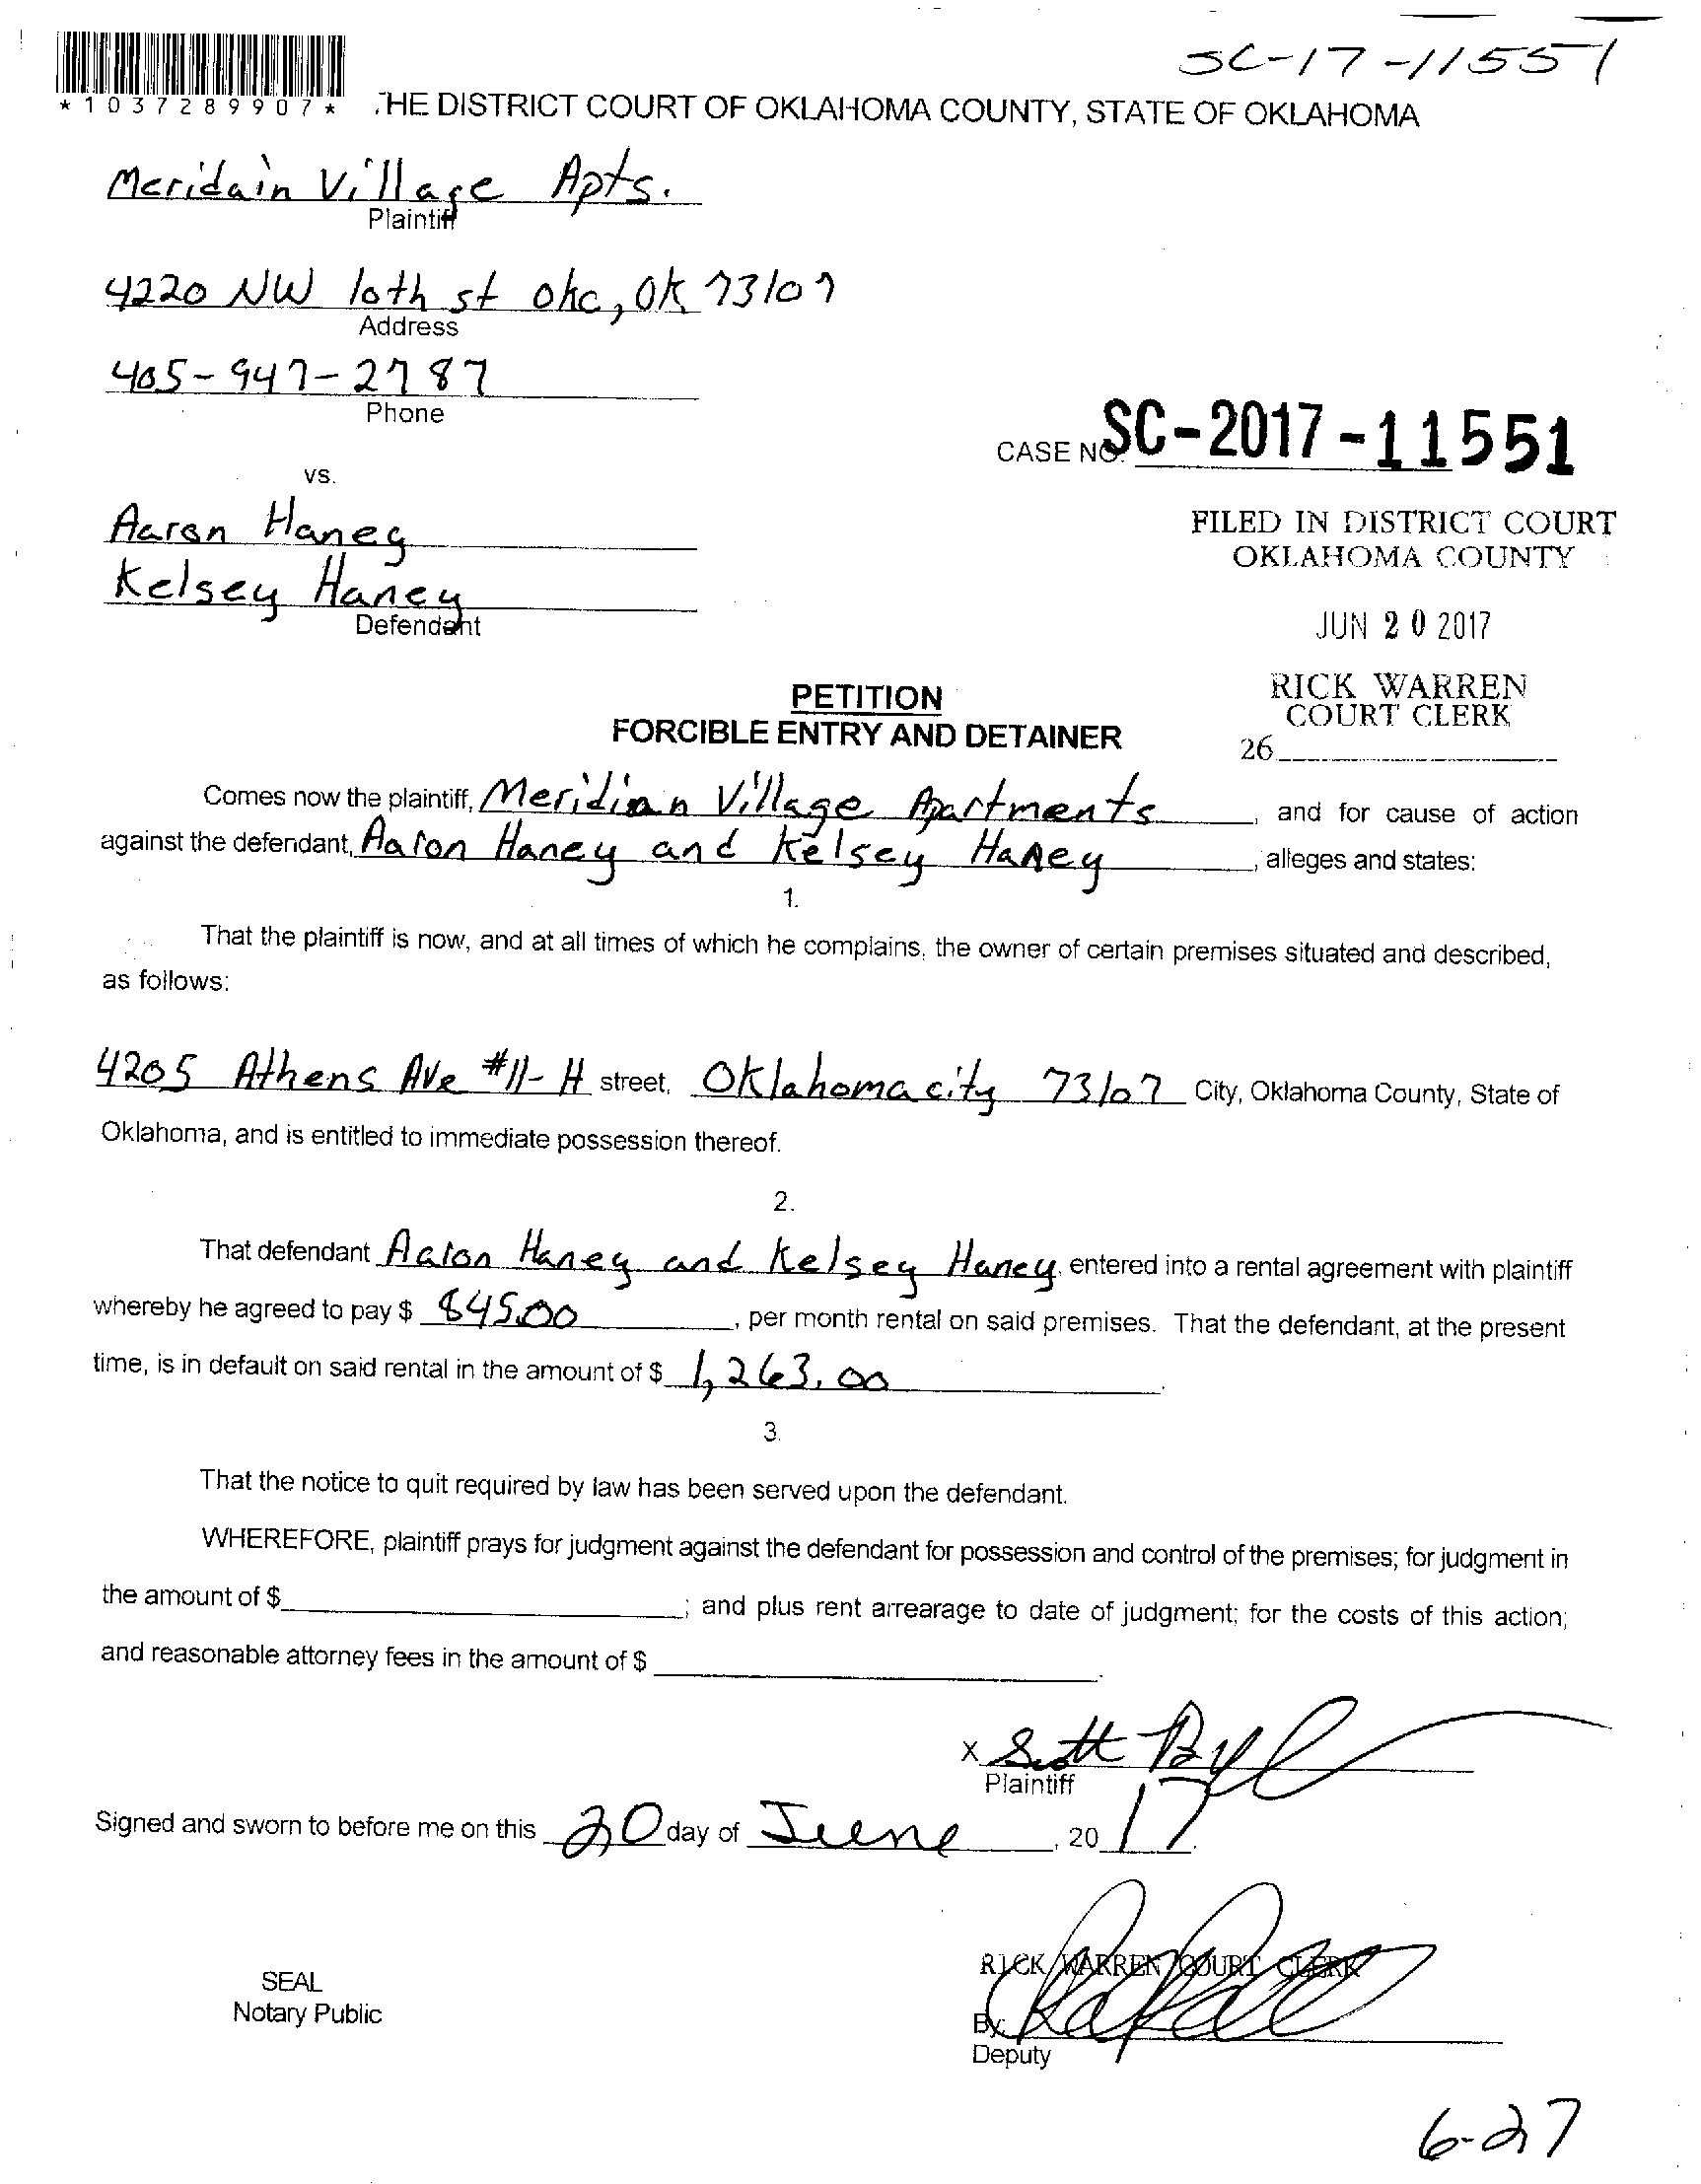 SC-17-11551
*1037289907*
THE DISTRICT COURT OF OKLAHOMA COUNTY, STATE OF OKLAHOMA
Meridain Village Apts.
Plaintiff
4220 NW 10th st okc, OK 73107
Address
405-947-2787
Phone
CASE NO. SC-2017-11551
vs.
Aaron Haney
Kelsey Haney
Defendant
FILED IN DISTRICT COURT
OKLAHOMA COUNTY
JUN 20 2017
RICK WARREN
COURT CLERK
26
PETITION
FORCIBLE ENTRY AND DETAINER
Comes now the plaintiff, Meridian Village Apartments, and for cause of action
against the defendant, Aaron Haney and Kelsey Haney, alleges and states:
1.
That the plaintiff is now, and at all times of which he complains, the owner of certain premises situated and described,
as follows:
4205 Athens Ave #11-H street, Oklahoma city 73107 City, Oklahoma County, State of
Oklahoma, and is entitled to immediate possession thereof.
2.
That defendant Aaron Haney and Kelsey Haney entered into a rental agreement with plaintiff
whereby he agreed to pay $ 845.00, per month rental on said premises. That the defendant, at the present
time, is in default on said rental in the amount of $ 1,263.00.
3.
That the notice to quit required by law has been served upon the defendant.
WHEREFORE, plaintiff prays for judgment against the defendant for possession and control of the premises; for judgment in
the amount of $ ; and plus rent arrearage to date of judgment; for the costs of this action;
and reasonable attorney fees in the amount of $ .
x Scott
Plaintiff
Signed and sworn to before me on this 20 day of June, 2017.
SEAL
Notary Public
RICK WARREN COURT CLERK
By:
Deputy
6-27